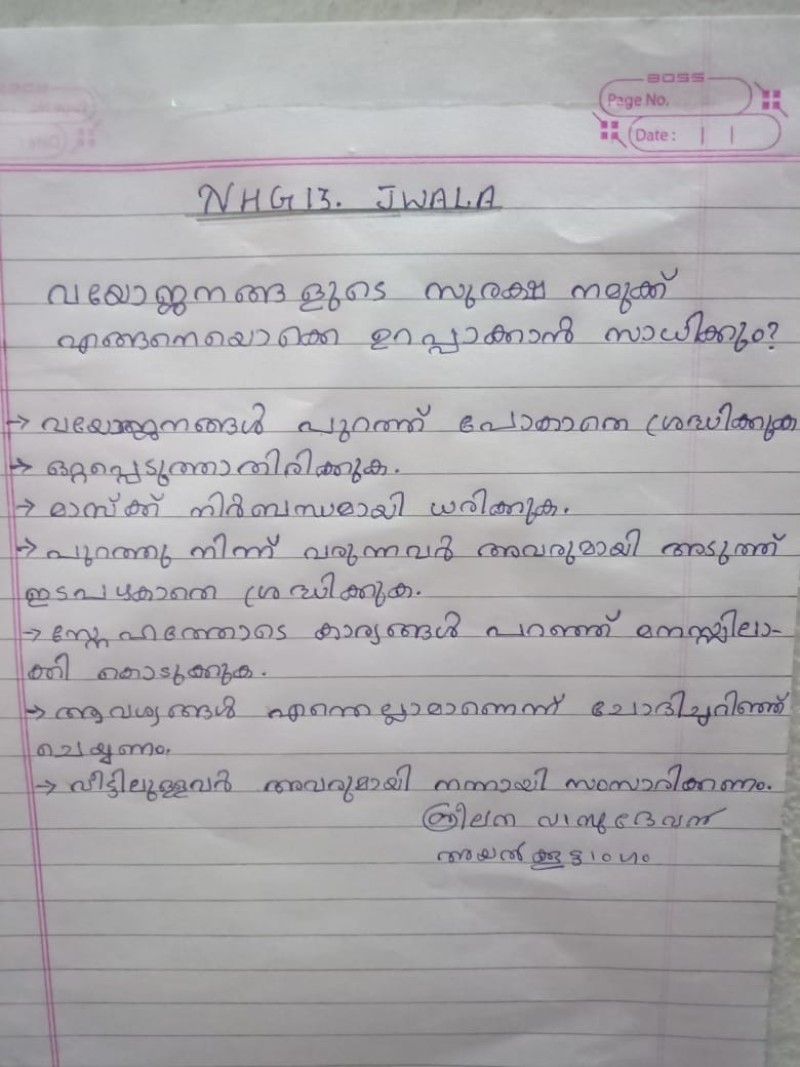 BOSS
Page No.
Date :
NHG 13. JWALA
വയോജനങ്ങളുടെ സുരക്ഷ നമുക്ക്
എങ്ങനെയൊക്കെ ഉറപ്പാക്കാൻ സാധിക്കും?
→ വയോജനങ്ങൾ പുറത്ത് പോകാതെ ശ്രദ്ധിക്കുക
→ ഒറ്റപ്പെടുത്താതിരിക്കുക.
→ മാസ്ക്ക് നിർബന്ധമായി ധരിക്കുക.
→ പുറത്തു നിന്ന് വരുന്നവർ അവരുമായി അടുത്ത്
ഇടപഴകാതെ ശ്രദ്ധിക്കുക.
→ സ്നേഹത്തോടെ കാര്യങ്ങൾ പറഞ്ഞ് മനസ്സിലാ-
ക്കി കൊടുക്കുക.
→ ആവശ്യങ്ങൾ എന്തെല്ലാമാണെന്ന് ചോദിച്ചറിഞ്ഞ്
ചെയ്യണം.
→ വീട്ടിലുള്ളവർ അവരുമായി നന്നായി സംസാരിക്കണം.
വാസുദേവൻ
അയൽക്കൂട്ടാംഗം